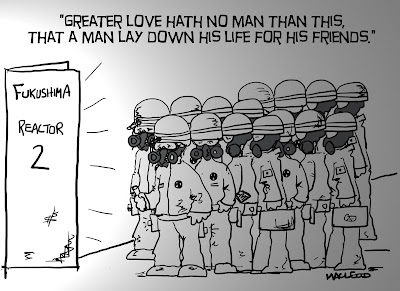 "GREATER LOVE HATH NO MAN THAN THIS,
THAT A MAN LAY DOWN HIS LIFE FOR HIS FRIENDS."
FUKUSHIMA
REACTOR
2
MACLEOD